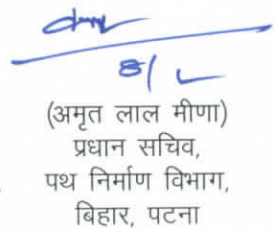 8/
(अमृत लाल मीणा)
प्रधान सचिव,
पथ निर्माण विभाग,
बिहार, पटना